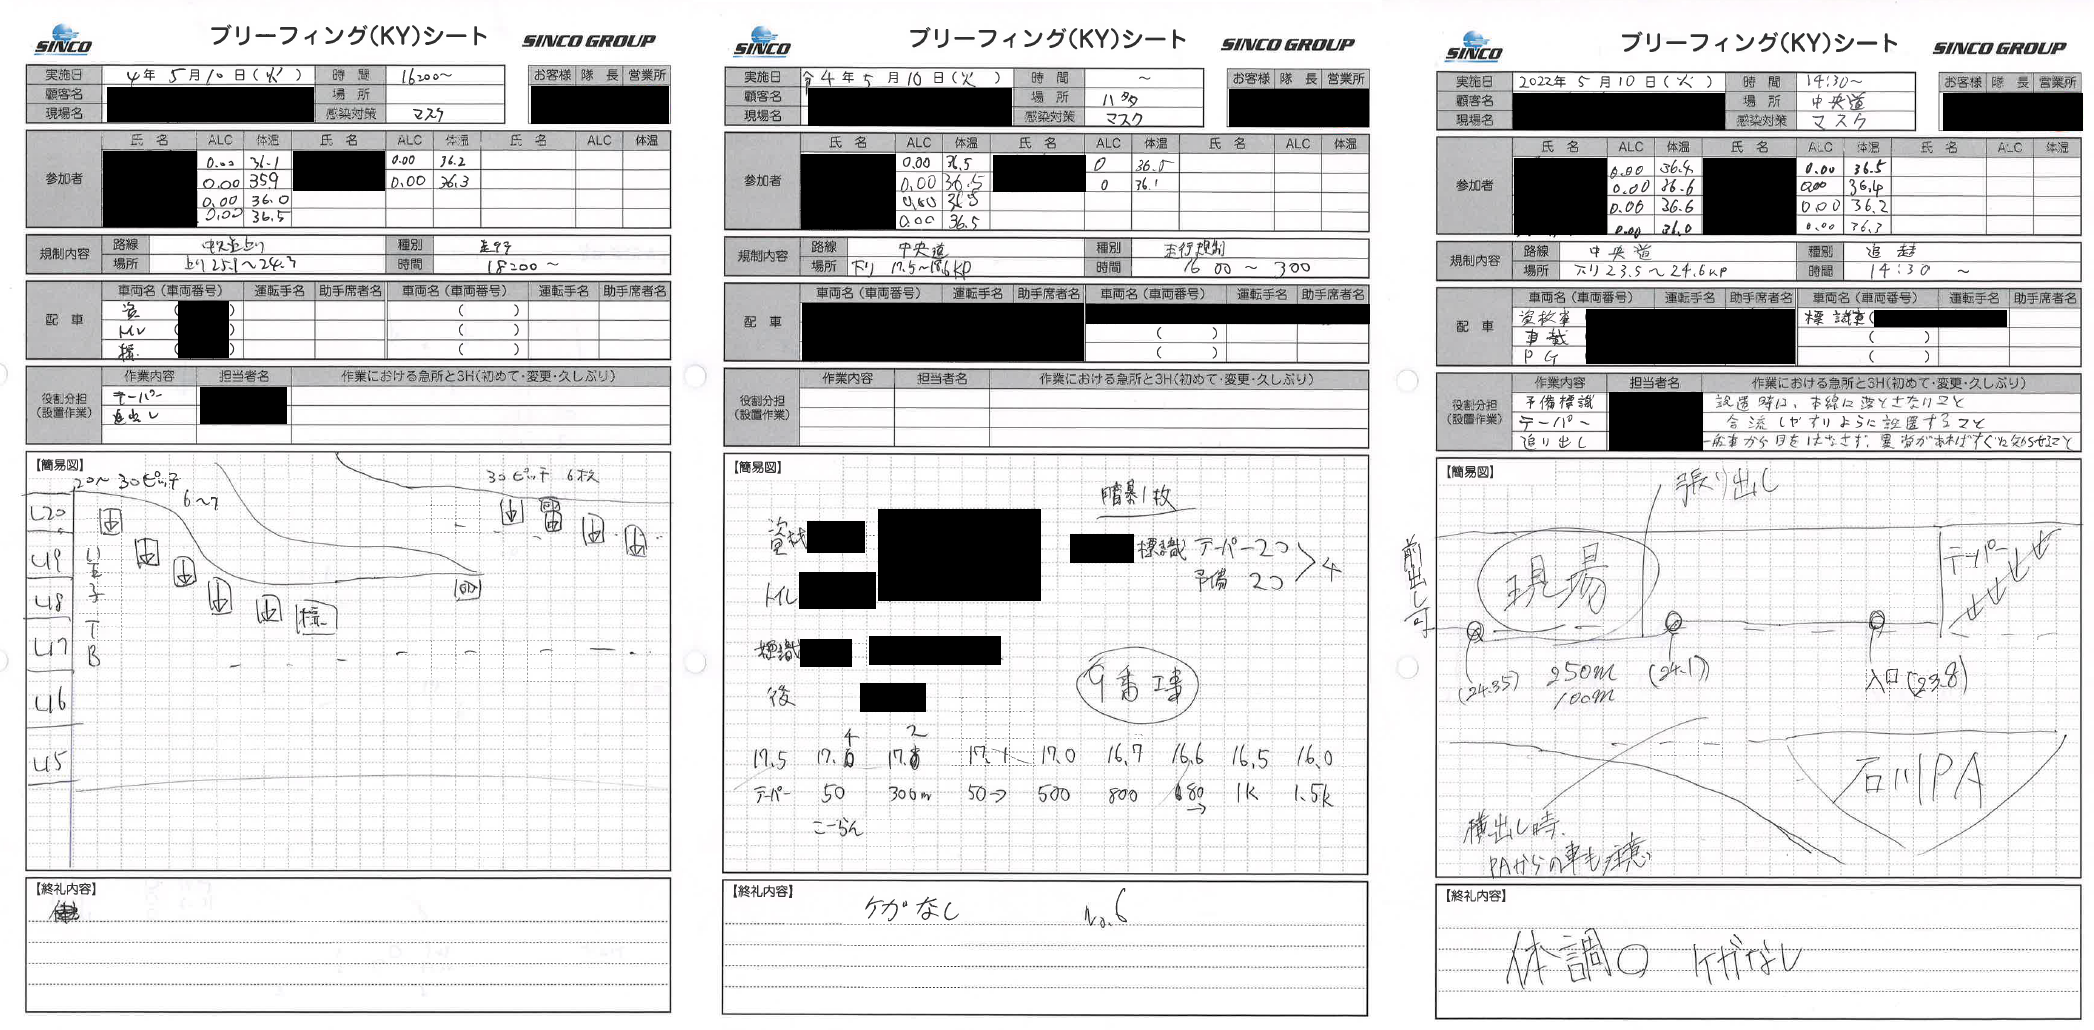 SINCO
ブリーフィング(KY)シート
SINCO GROUP
実施日 4年 5月10日(火) 時間 16:00~
お客様 隊長 営業所
顧客名 場所
現場名 感染対策 マスク
氏名 ALC 体温 氏名 ALC 体温 氏名 ALC 体温
参加者
0.00 36.1 0.00 36.2
0.00 35.9 0.00 36.3
0.00 36.0
0.00 36.5
規制内容
路線 種別
場所 上り25.1~24.3 時間 18:00~
配車
車両名(車両番号) 運転手名 助手席者名 車両名(車両番号) 運転手名 助手席者名
資 ( ) ( )
( ) ( )
標 ( ) ( )
役割分担
(設置作業)
作業内容 担当者名 作業における急所と3H(初めて・変更・久しぶり)
テーパー
追出し
【簡易図】
20~30ピッチ
6~7
30ピッチ 6枚
標
【終礼内容】
SINCO
ブリーフィング(KY)シート
SINCO GROUP
実施日 令4年 5月10日(火) 時間 ~
お客様 隊長 営業所
顧客名 場所 ハタ
現場名 感染対策 マスク
氏名 ALC 体温 氏名 ALC 体温 氏名 ALC 体温
参加者
0.00 36.5 0 36.5
0.00 36.5 0 36.1
0.00 36.5
0.00 36.5
規制内容
路線 中央道 種別 走行規制
場所 下り 17.5~18.6KP 時間 16 00~ 300
配車
車両名(車両番号) 運転手名 助手席者名 車両名(車両番号) 運転手名 助手席者名
( )
( )
役割分担
(設置作業)
作業内容 担当者名 作業における急所と3H(初めて・変更・久しぶり)
【簡易図】
資材
標識 テーパー20
予備 20
4
トイレ
標識
後
17.5 17.1 17.0 16.7 16.6 16.5 16.0
テーパー 50 300m 50→ 500 800 1K 1.5K
【終礼内容】
ケガなし No.6
SINCO
ブリーフィング(KY)シート
SINCO GROUP
実施日 2022年 5月10日(火) 時間 14:30~
お客様 隊長 営業所
顧客名 場所 中央道
現場名 感染対策 マスク
氏名 ALC 体温 氏名 ALC 体温 氏名 ALC 体温
参加者
0.00 36.4 0.00 36.5
0.00 36.6 0.00 36.4
0.00 36.6 0.00 36.2
0.00 36.0 0.00 36.3
規制内容
路線 中央道 種別 追越
場所 下り23.5~24.6KP 時間 14:30 ~
配車
車両名(車両番号) 運転手名 助手席者名 車両名(車両番号) 運転手名 助手席者名
標識車(
車載 ( )
PG ( )
役割分担
(設置作業)
作業内容 担当者名 作業における急所と3H(初めて・変更・久しぶり)
予備標識 設置時に、本線に落とさないこと
テーパー 合流しやすいように設置すること
追い出し 一般車から目をはなさず、異常があればすぐに知らせること
【簡易図】
張り出し
前出し可
現場
テーパー
(24.35) 250m (24.1) 入口(23.8)
100m
石川PA
横出し時、
PAからの車も注意
【終礼内容】
体調○ ケガなし